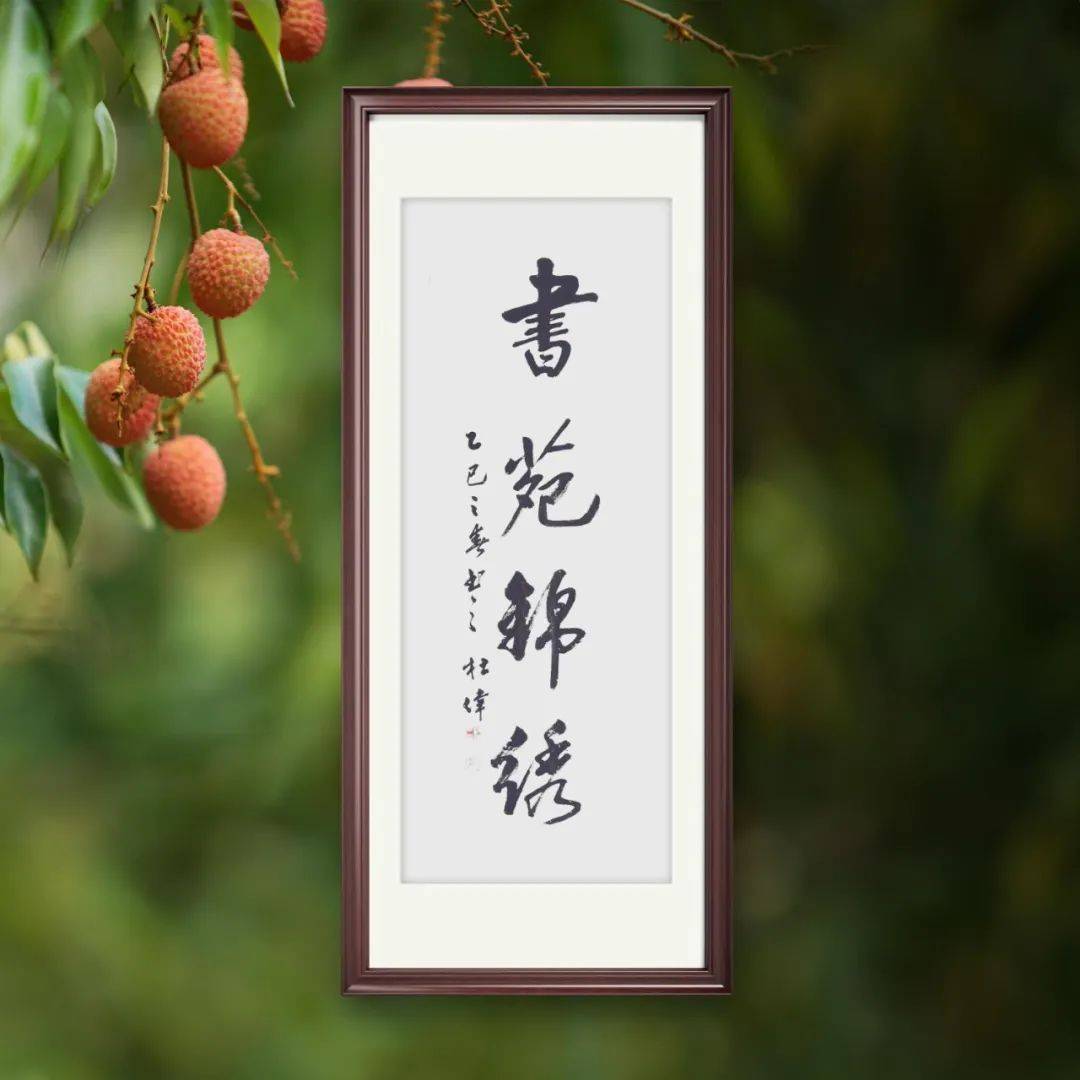 書苑錦綉
乙巳之春书之 杜偉